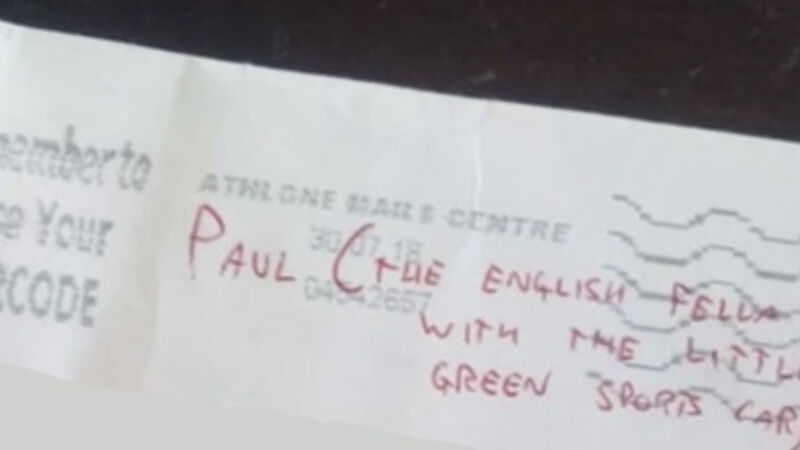 member to
se Your
RCODE
ATHLONE MAILS CENTRE
30.07.18
04542657
PAUL (THE ENGLISH FELLA
WITH THE LITTLE
GREEN SPORTS CAR)